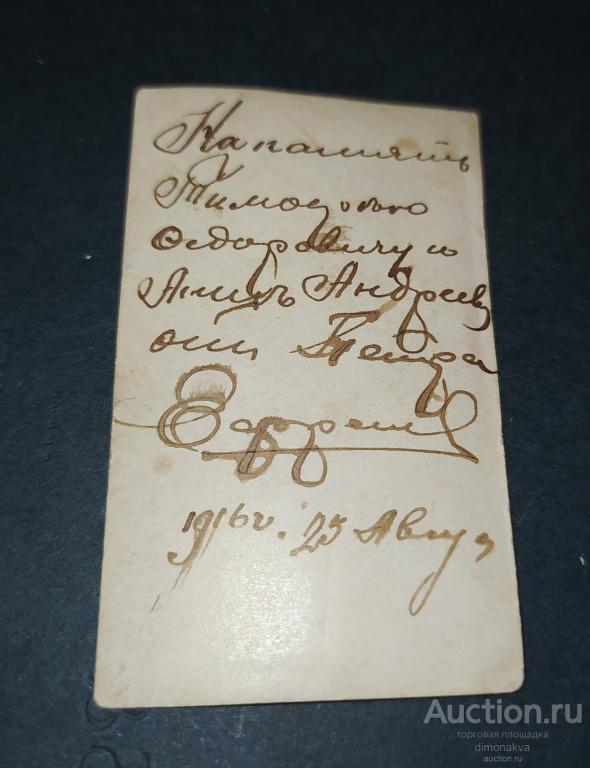 На память
Тимофѣю
Федоровичу и
Аннѣ Андреев
отъ Петра
1916 г. 23 Авгу
Auction.ru
торговая площадка
dimonakva
auction.ru